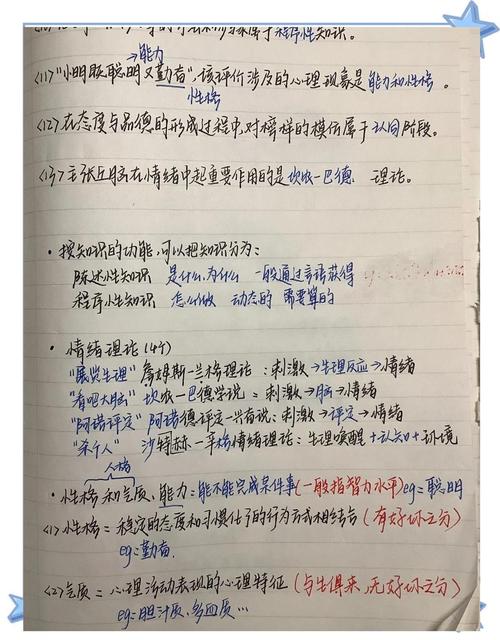 属于程序性知识。
→能力
<11>"小明既聪明又勤奋",该评价涉及的心理现象是能力和性格。
性格
<12>在态度与品德的形成过程中,对榜样的模仿属于认同阶段。
<13>主张丘脑在情绪中起重要作用的是坎农-巴德 理论。
·按知识的功能,可以把知识分为:
陈述性知识 是什么.为什么 一般通过言语获得
程序性知识 怎么做 动态的 需要算的
·情绪理论(4个)
"展览生理"詹姆斯-兰格理论:刺激→生理反应→情绪
"看吧大脑"坎农-巴德学说=刺激→脑→情绪
"阿诺评定"阿诺德评定-兴奋说:刺激→评定→情绪
"杀个人"沙特赫-辛格情绪理论:生理唤醒+认知+环境
人格
·性格和气质、能力:能不能完成某件事(一般指智力水平)eg=聪明
<1>性格=稳定的态度和习惯化了的行为方式相结合(有好坏之分)
eg:勤奋.
<2>气质=心理活动表现的心理特征(与生俱来,无好坏之分)
eg:胆汁质,多血质…